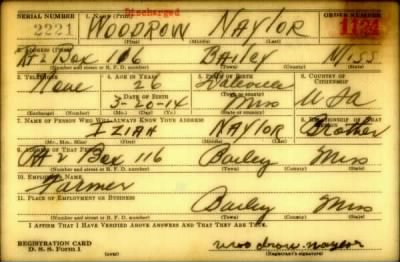 Discharged
SERIAL NUMBER 1. NAME (Print) ORDER NUMBER
2221 WOODROW NAYLOR 1124
(First) (Middle) (Last)
2. ADDRESS (Print)
Rt 2 Box 116 Bailey Miss
(Number and street or R. F. D. number) (Town) (County) (State)
3. TELEPHONE 4. AGE IN YEARS 5. PLACE OF BIRTH 6. COUNTRY OF CITIZENSHIP
None 26
DATE OF BIRTH (Town or county)
3-20-14 Miss USA
(Exchange) (Number) (Mo.) (Day) (Yr.) (State or country)
7. NAME OF PERSON WHO WILL ALWAYS KNOW YOUR ADDRESS 8. RELATIONSHIP OF THAT PERSON
IZIAH NAYLOR Brother
(Mr., Mrs., Miss) (First) (Middle) (Last)
9. ADDRESS OF THAT PERSON
Rt 2 Box 116 Bailey Miss
(Number and street or R. F. D. number) (Town) (County) (State)
10. EMPLOYER'S NAME
Farmer
11. PLACE OF EMPLOYMENT OR BUSINESS
Bailey Miss
(Number and street or R. F. D. number) (Town) (County) (State)
I AFFIRM THAT I HAVE VERIFIED ABOVE ANSWERS AND THAT THEY ARE TRUE.
REGISTRATION CARD
D. S. S. Form 1 woodrow naylor
(Registrant's signature)